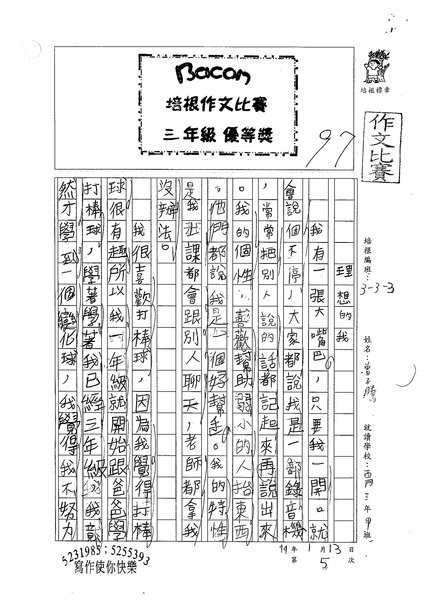 Bacon
培根作文比賽
三年級 優等獎
培根標章
97
作文比賽
培根編班：3-3-3
姓名：
就讀學校：西門三年甲班
理想的我
我有一張大嘴巴，只要我一開口就
會說個不停，大家都說我是一部錄音機
，常常把別人說的話都記起來再說出來
。我的個性，喜歡幫助弱小的人抬東西
，他們都說我是一個好幫手。我的特性
是我上課都會跟別人聊天，老師都拿我
沒辦法。
我很喜歡打棒球，因為我覺得打棒
球很有趣所以我一年級就開始跟爸爸學
打棒球，學著學著我已經三年級，我竟
然才學到一個變化球，我覺得我不努力
99年1月13日
第5次
5231985；5255393
寫作使你快樂